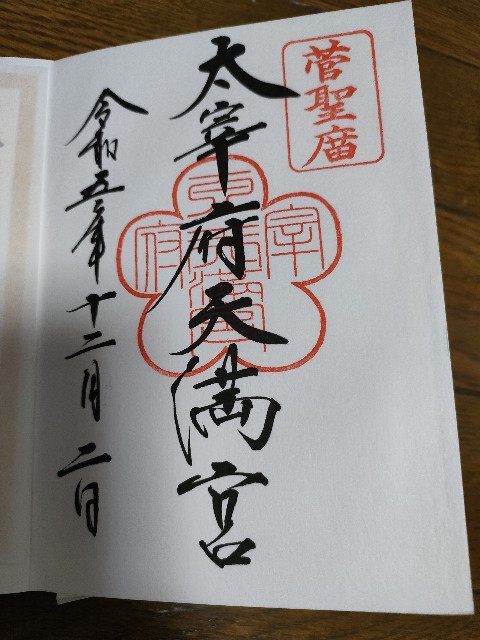 菅聖庿
太宰府天満宮
令和五年十二月二日